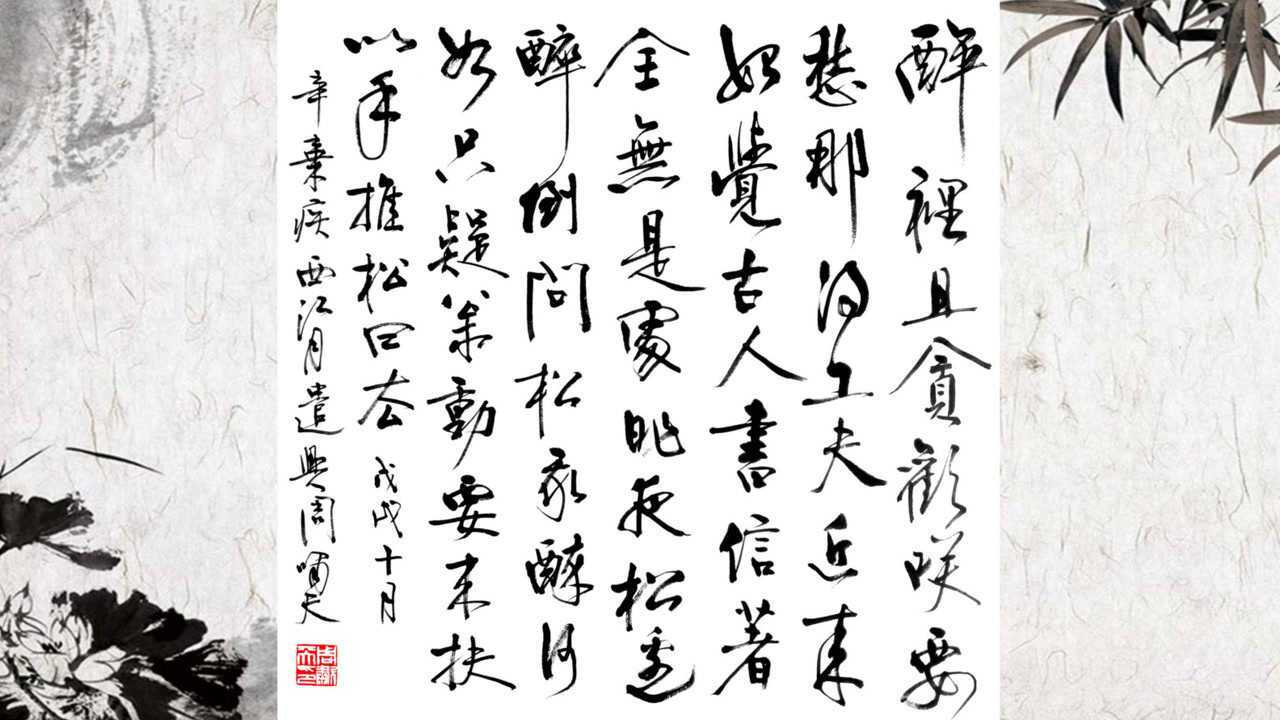 醉裡且貪歡咲要
愁那得工夫近来
始覺古人書信著
全無是處昨夜松邊
醉倒問松我醉何
如只疑枀動要来扶
以手推松曰去 戊戌十月
辛棄疾西江月遣興周嘯天